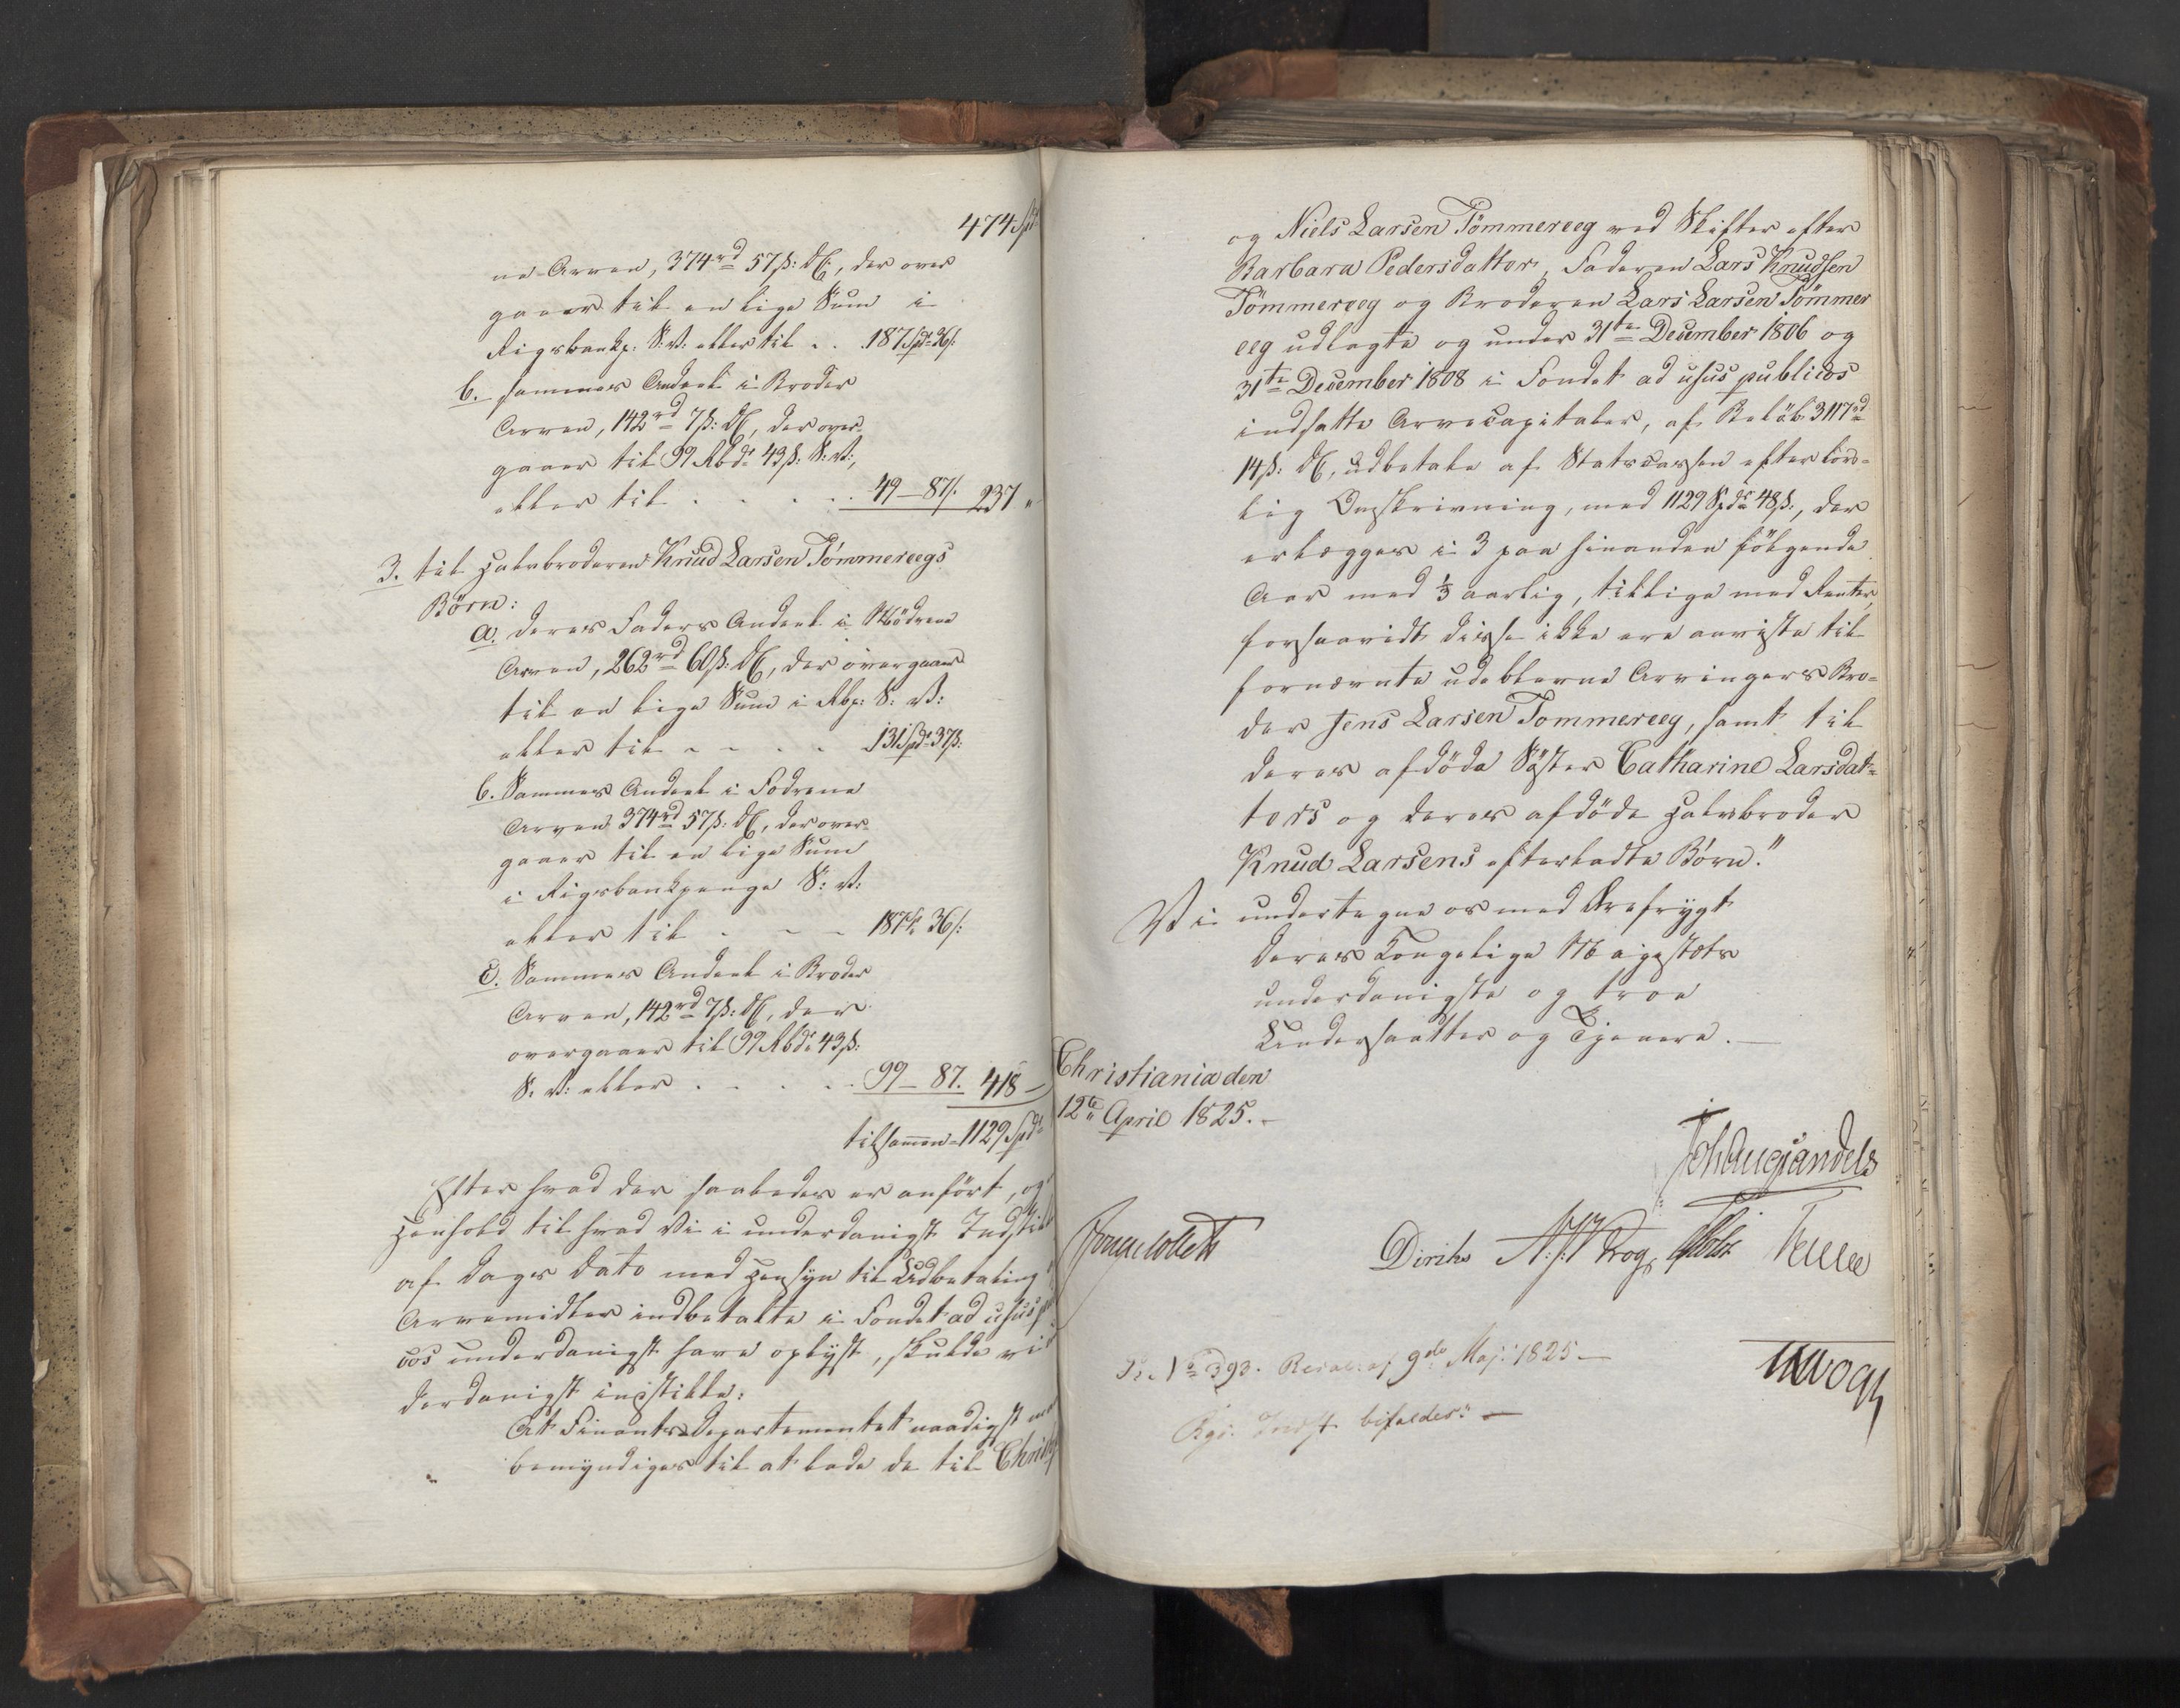 474 Spd
ne Arven, 374rd 57ß: DC, der over
gaaer til en lige Sum i
Rigsbankp: S: V: eller til . . 187 Spd 36ß.
b. sammes Andeel i Broder
Arven, 142rd 7ß: DC, der over-
gaaer til 99 Rbd. 43ß. S: V:,
eller til . . . . 49 — 87ß. 237 "
3. til Halvbroderen Knud Larsen Tömmereegs
Börn:
a. deres Faders Andeel i Mödrene
Arven, 262rd 60ß: DC, der overgaaer
til en lige Sum i Rbp: S: V:
eller til - - - - 131 Spd. 37ß.
b. Sammes Andeel i Fædrene
Arven 374rd 57ß: DC, der over-
gaaer til en lige Sum
i Rigsbankpenge S: V:
eller til - - - 187 36ß:
c. Sammes Andeel i Broder
Arven, 142rd 7ß: DC, der
overgaaer til 99 Rbd. 43ß:
S: V: eller . . . . . 99 — 87. 418 —
tilsammen - 1129 Spd
Efter hvad der saaledes er anfört, og
Henhold til hvad Vi i underdanigst Indstil
af Dags Dato med Hensyn til Udbetaling
Arvemidler indbetalte i Fondet ad usus p
cos underdanigst have oplyst, skulde vi
derdanigst indstille:
At Finants-Departementet naadigst
bemyndiges til at lade de til Christ
og Niels Larsen Tömmereeg ved Skifter efter
Barbara Pedersdatter, Faderen Lars Knudsen
Tömmereeg og Broderen Lars Larsen Tömmer
eeg udlagte og under 31te December 1806 og
31te December 1808 i Fondet ad usus publicos
indsatte Arvecapitaler, af Belöb 3117rd
14ß: DC, udbetale af Statscassen efter lov-
lig Omskrivning, med 1129 Spdr 48ß., der
erlægges i 3 paa hinanden fölgende
Aar med 1/3 aarlig, tillige med Renter,
forsaavidt disse ikke ere anviste til
fornævnte udeblevne Arvingers Bro-
der Jens Larsen Tommereeg, samt til
deres afdöde Söster Catharine Larsdat-
ters og deres afdöde Halvbroder
Knud Larsens efterladte Börn."
Vi undertegne os med Ærefrygt
Deres Kongelige Majestæts
underdanigste og troe
Undersaatter og Tjenere. —
Christiania den
12te April 1825. -
Joh Aug Sandels
Jonas Collett
Diriks A. J. Krog Holst Treschow
No 393. Resol: af 9de Maj: 1825 —
JHVogt
Rgs. Indst. bifaldes: —